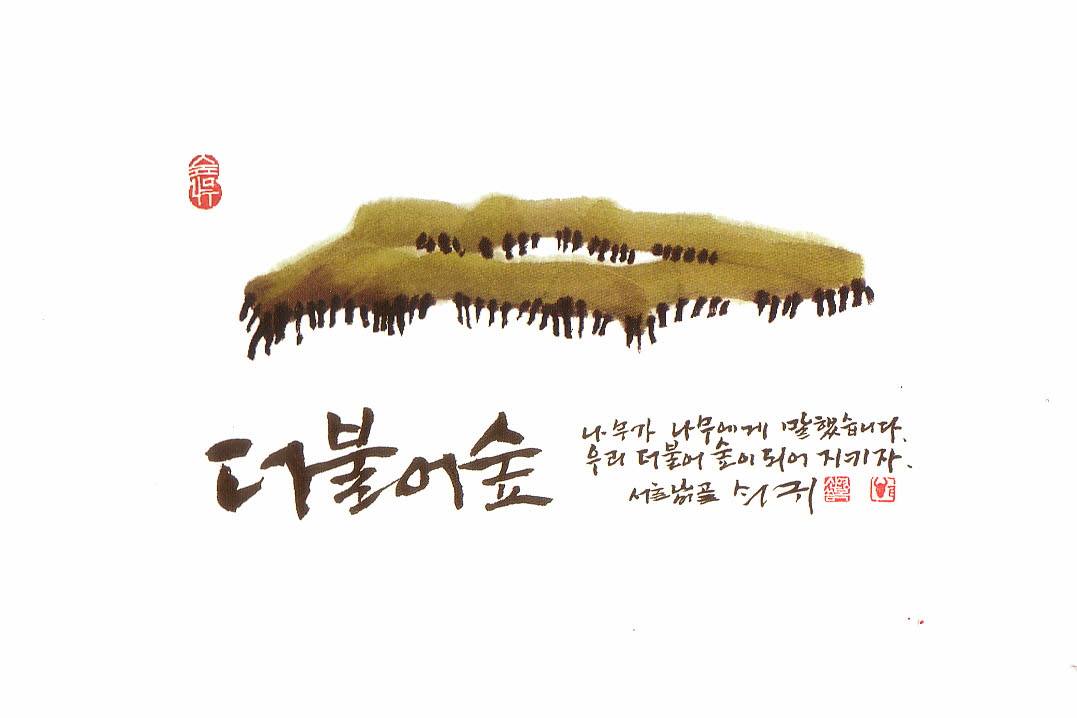 더불어숲
나무가 나무에게 말했습니다.
우리 더불어 숲이 되어 지키자.
서순라골 쇠귀